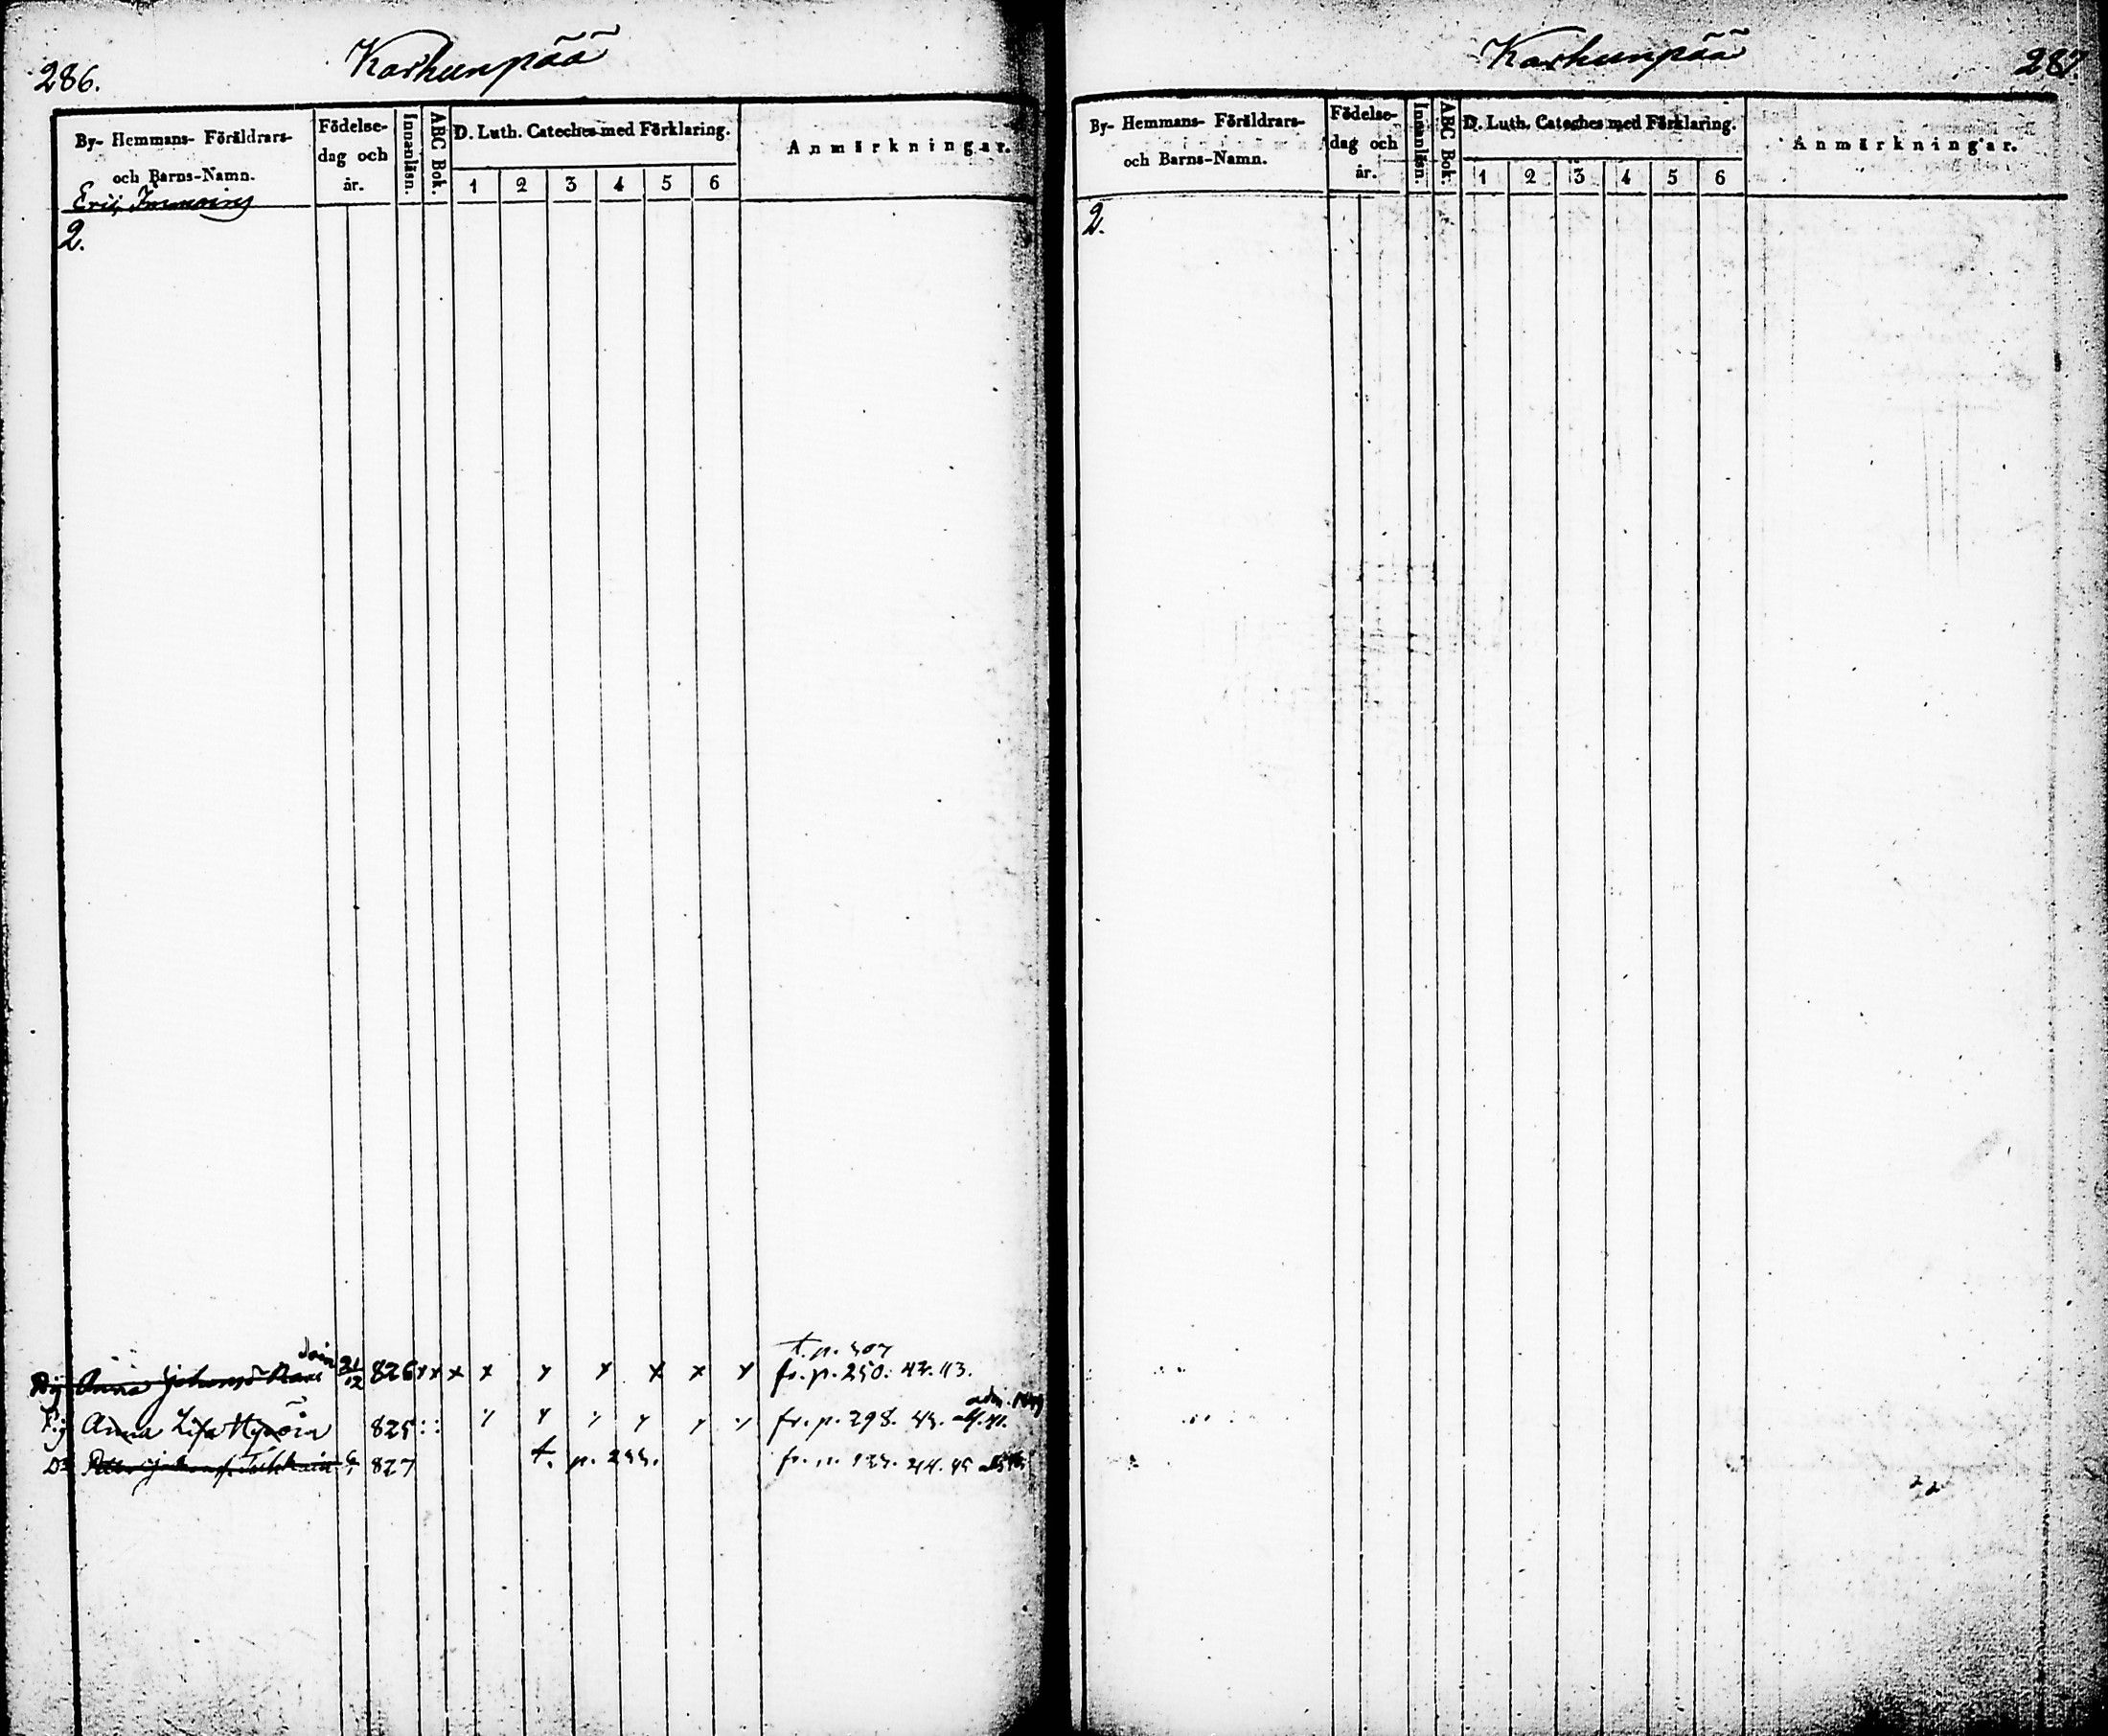 286.
Karhunpää
By- Hemmans- Föräldrars-
och Barns-Namn.
Födelse-
dag och
år.
Innanläsn.
ABC Bok.
D. Luth. Cateches med Förklaring.
1 2 3 4 5 6
Anmärkningar.
Eric Immoins
2.
t. p. 307
Anna Johansd 21/12 826 x x x x x x x x x fr. p. 250. 43.
Anna Lisa Hyvöin 825 fr. p. 298. 43.
t. p. 255.
827
Karhunpää
287
By- Hemmans- Föräldrars-
och Barns-Namn.
Födelse-
dag och
år.
Innanläsn.
ABC Bok.
D. Luth. Cateches med Förklaring.
1 2 3 4 5 6
Anmärkningar.
2.